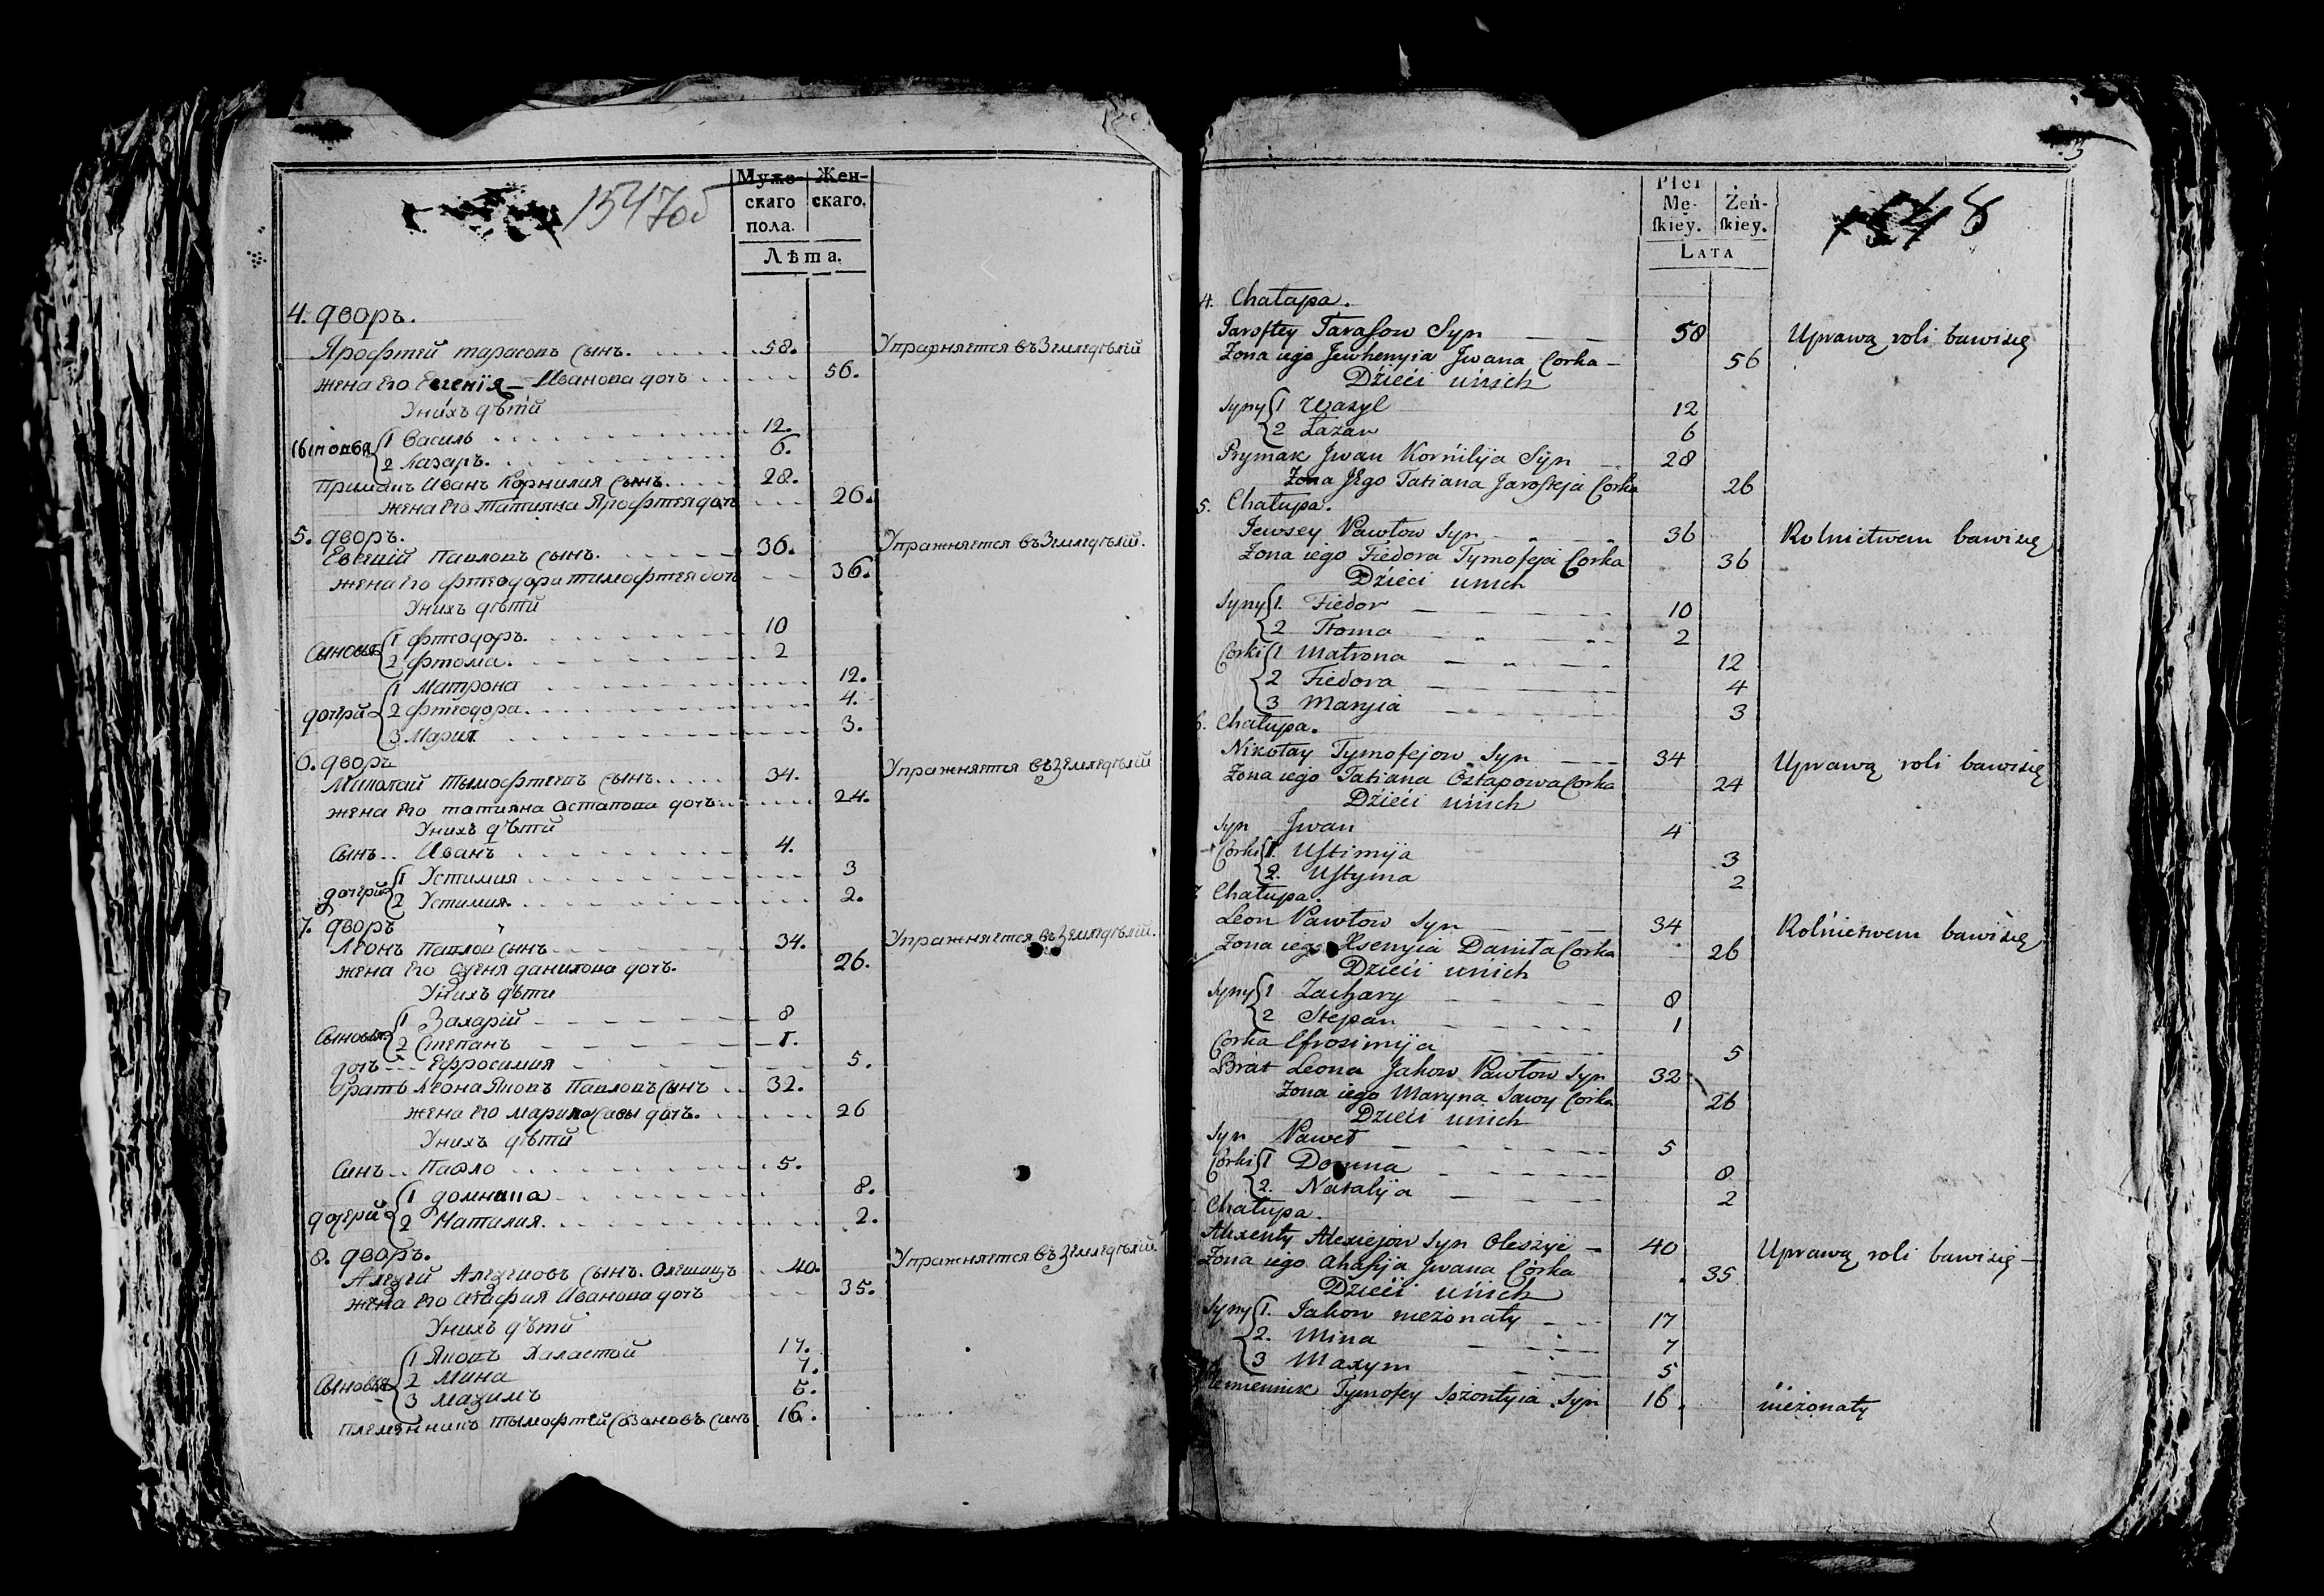 1547об
Муже-
скаго
пола.
Жен-
скаго.
Лѣта.
4. дворъ.
Ярофтей тарасовъ сынъ. 58. Упражняется въ Земледѣлій
жена его Евгенїя Иванова дочь 56.
Унихъ дѣти
сыновя 1 Василь 12.
2 Лазарь. 6.
Примакъ Иванъ Корнилия сынъ 28.
жена его Татияна Ярофтея дочь 26.
5. дворъ.
Евсѣий Павловъ сынъ. 36. Упражняется въ Земледѣлій.
жена его фтеодора тимофтея дочь 36.
Унихъ дѣти
Сыновья 1 фтеодоръ. 10
2 фтома. 2
дочери 1 Матрона 12.
2 фтеодора. 4.
3 Мария. 3.
6. дворъ
Николай тымофтеевъ сынъ. 34. Упражняется въ земледѣлій
жена его татияна Остапова дочь 24.
Унихъ дѣти
Сынъ Иванъ 4.
дочери 1 Устимия 3
2 Устимия. 2.
7. дворъ
Леонъ Павлов сынъ 34. Упражняется въ Земледѣлій.
жена его данилова дочь. 26.
Унихъ дѣти
Сыновья 1 Захарій 8
2 Степанъ 1.
дочь Ефросимия 5.
братъ Леона Яковъ Павловъ сынъ 32.
жена его марина савы дочь. 26
Унихъ дѣти
Синъ Павло 5.
дочери 1 домника 8.
2 Наталия. 2.
8. дворъ.
Алезей Алезеиовъ сынъ. Олешицъ 40. Упражняется въ Земледѣлій.
жена его Агафия Иванова дочь 35.
Унихъ дѣти
Сыновья 1 Яковъ Халастой 17.
2 Мина 7.
3 мазимъ 5.
племянникъ тымофтей Созоновъ синъ 16.
3
1548
Płci
Mę-
ſkiey.
Żeń-
ſkiey.
Lata
4. Chałupa.
Jaroftey Tarasow Syn 58 Uprawą roli bawi się
Zona iego Jewhenyia Jwana Corka 56
Dźieći unich
Syny 1 Wasyl 12
2 Łazar 6
Prymak Jwan Korniłija Syn 28
Zona Jego Tatiana Jarofteja Corka 26
5. Chałupa.
Jewsey Pawłow Syn 36 Rolnictwem bawi się
Zona iego Fiedora Tymofeja Corka 36
Dźieći unich
Syny 1. Fiedor 10
2 Ftoma 2
Corki 1 Matrona 12
2 Fiedora 4
3 Maryia 3
6. Chałupa.
Nikołay Tymofejow Syn 34 Uprawą roli bawi się
Zona iego Tatiana Ostapowa Corka 24
Dźieći unich
Syn Jwan 4
Corki 1. Ustimija 3
2. Ustyma 2
7 Chałupa.
Leon Pawłow Syn 34 Rolnictwem bawi się
Zona iego Xsenyia Daniła Corka 26
Dźieći unich
Syny 1 Zachary 8
2 Stepan 1
Corka Efrosimija 5
Brat Leona Jakow Pawłow Syn 32
Zona iego Maryna Sawy Corka 26
Dźieći unich
Syn Paweł 5
Corki 1 Domna 8
2. Natalija 2
Chałupa.
Alexenty Alexiejow Syn Oleszyć 40 Uprawą roli bawi się
Zona iego Ahafija Jwana Córka 35
Dźieći unich
Syny 1. Jakow nieżonaty 17
2. Mina 7
3 Maxym 5
Plemiennik Tymofey Syn 16. nieżonaty